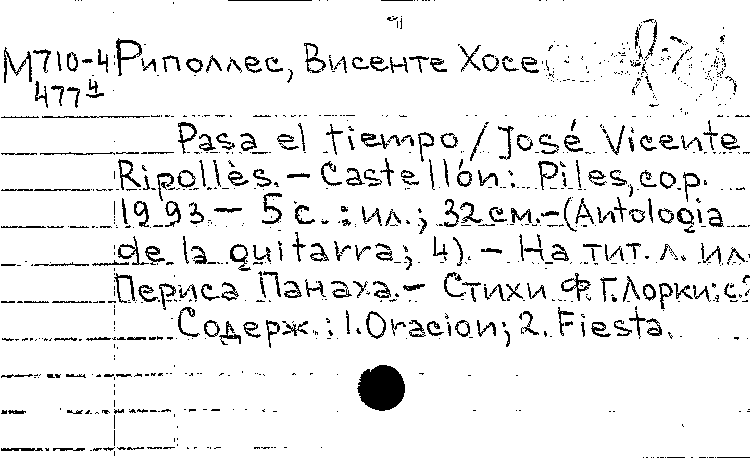 М710-4 Риполлес, Висенте Хосе
477 4
Pasa el tiempo / José Vicente
Ripollès. – Castellón: Piles, cop.
1993. – 5 с. : ил.; 32 см. – (Antologia
de la guitarra; 4). – На тит. л. ил.
Периса Панаха. – Стихи Ф. Г. Лорки: с.2
Содерж.: 1. Oracion; 2. Fiesta.